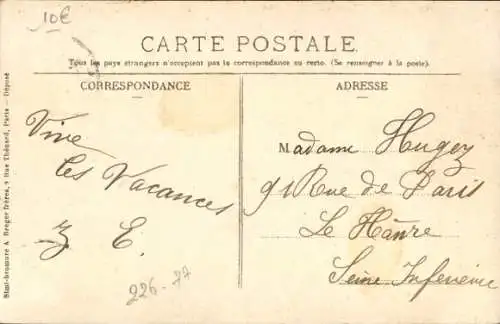 10€
CARTE POSTALE
Tous les pays étrangers n'acceptent pas la correspondance au recto. (Se renseigner à la poste).
CORRESPONDANCE
ADRESSE
Vive
les Vacances
Z E.
226-77
Madame Hugez
91 Rue de Paris
Le Hâvre
Seine Inferieure
Simi-bromure A. Breger frères, 9 Rue Thénard, Paris — Déposé